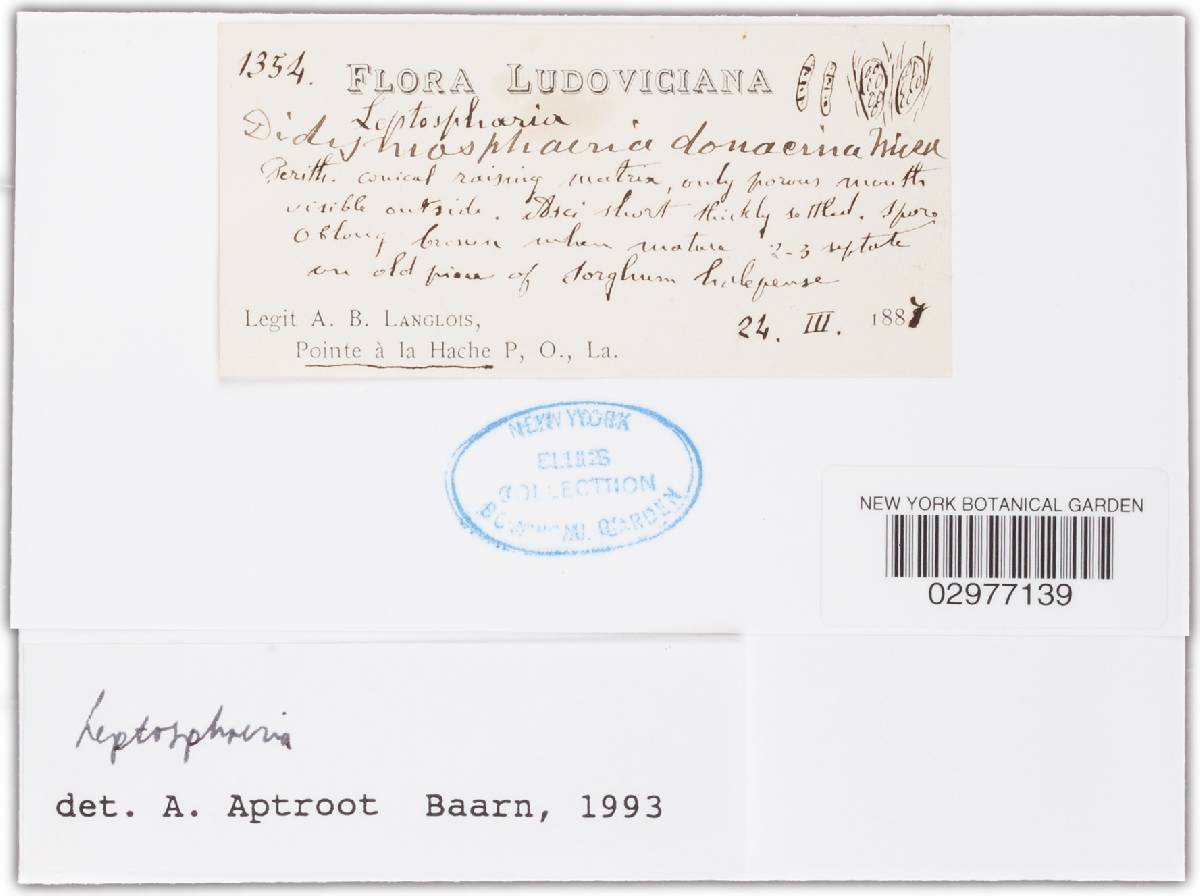 1354. FLORA LUDOVICIANA
Leptospharia
Didymosphaeria donacina Niessl
Perith. conical raising matrix, only porous mouth
visible outside. Asci short thickly settled. Spor.
Oblong brown when mature 2-3 septate
on old piece of Sorghum halepense
Legit A. B. LANGLOIS,
Pointe à la Hache P, O., La.
24. III. 1887
NEW YORK
ELLIS
COLLECTION
BOTANICAL GARDEN
NEW YORK BOTANICAL GARDEN
02977139
Leptosphaeria
det. A. Aptroot Baarn, 1993